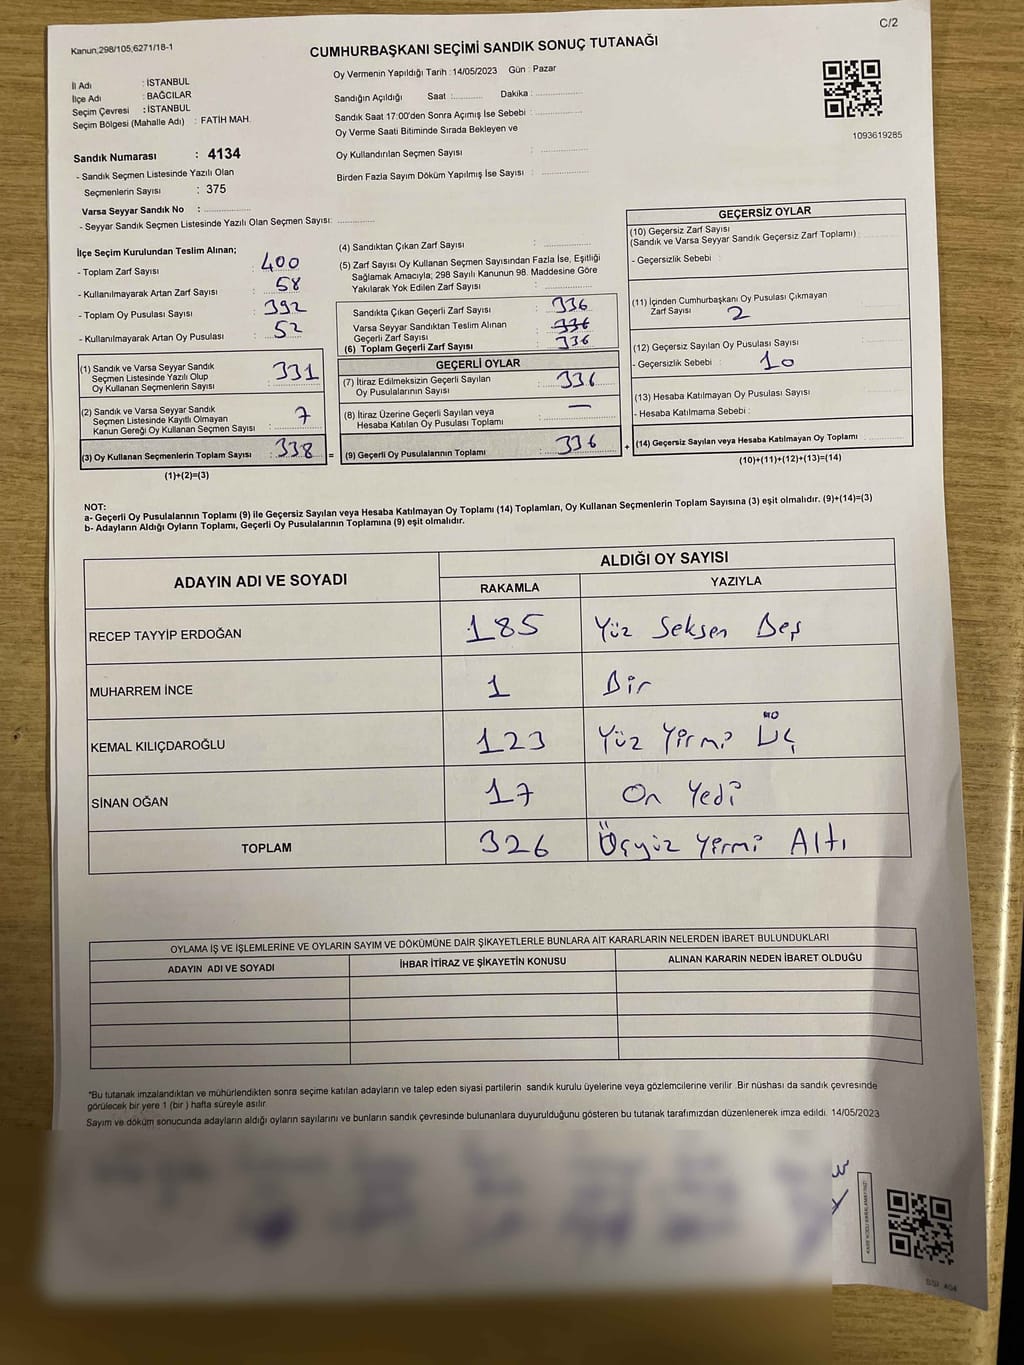 C/2
Kanun;298/105;6271/18-1
CUMHURBAŞKANI SEÇİMİ SANDIK SONUÇ TUTANAĞI
İl Adı : İSTANBUL
İlçe Adı : BAĞCILAR
Seçim Çevresi : İSTANBUL
Seçim Bölgesi (Mahalle Adı) : FATİH MAH.
Oy Vermenin Yapıldığı Tarih : 14/05/2023 Gün : Pazar
Sandığın Açıldığı Saat : Dakika :
Sandık Saat 17:00'den Sonra Açımış İse Sebebi :
Oy Verme Saati Bitiminde Sırada Bekleyen ve
Oy Kullandırılan Seçmen Sayısı :
Birden Fazla Sayım Döküm Yapılmış İse Sayısı :
1093619285
Sandık Numarası : 4134
- Sandık Seçmen Listesinde Yazılı Olan
Seçmenlerin Sayısı : 375
Varsa Seyyar Sandık No :
- Seyyar Sandık Seçmen Listesinde Yazılı Olan Seçmen Sayısı:
İlçe Seçim Kurulundan Teslim Alınan;
- Toplam Zarf Sayısı : 400
- Kullanılmayarak Artan Zarf Sayısı : 58
- Toplam Oy Pusulası Sayısı : 392
- Kullanılmayarak Artan Oy Pusulası : 52
(1) Sandık ve Varsa Seyyar Sandık
Seçmen Listesinde Yazılı Olup
Oy Kullanan Seçmenlerin Sayısı : 331
(2) Sandık ve Varsa Seyyar Sandık
Seçmen Listesinde Kayıtlı Olmayan
Kanun Gereği Oy Kullanan Seçmen Sayısı : 7
(3) Oy Kullanan Seçmenlerin Toplam Sayısı : 338 =
(1)+(2)=(3)
(4) Sandıktan Çıkan Zarf Sayısı :
(5) Zarf Sayısı Oy Kullanan Seçmen Sayısından Fazla İse, Eşitliği
Sağlamak Amacıyla; 298 Sayılı Kanunun 98. Maddesine Göre
Yakılarak Yok Edilen Zarf Sayısı :
Sandıkta Çıkan Geçerli Zarf Sayısı : 336
Varsa Seyyar Sandıktan Teslim Alınan
Geçerli Zarf Sayısı : 336
(6) Toplam Geçerli Zarf Sayısı : 336
GEÇERLİ OYLAR
(7) İtiraz Edilmeksizin Geçerli Sayılan
Oy Pusulalarının Sayısı : 336
(8) İtiraz Üzerine Geçerli Sayılan veya
Hesaba Katılan Oy Pusulası Toplamı : —
(9) Geçerli Oy Pusulalarının Toplamı : 336 +
GEÇERSİZ OYLAR
(10) Geçersiz Zarf Sayısı
(Sandık ve Varsa Seyyar Sandık Geçersiz Zarf Toplamı) :
- Geçersizlik Sebebi :
(11) İçinden Cumhurbaşkanı Oy Pusulası Çıkmayan
Zarf Sayısı : 2
(12) Geçersiz Sayılan Oy Pusulası Sayısı :
- Geçersizlik Sebebi : 10
(13) Hesaba Katılmayan Oy Pusulası Sayısı :
- Hesaba Katılmama Sebebi :
(14) Geçersiz Sayılan veya Hesaba Katılmayan Oy Toplamı :
(10)+(11)+(12)+(13)=(14)
NOT:
a- Geçerli Oy Pusulalarının Toplamı (9) ile Geçersiz Sayılan veya Hesaba Katılmayan Oy Toplamı (14) Toplamları, Oy Kullanan Seçmenlerin Toplam Sayısına (3) eşit olmalıdır. (9)+(14)=(3)
b- Adayların Aldığı Oyların Toplamı, Geçerli Oy Pusulalarının Toplamına (9) eşit olmalıdır.
ADAYIN ADI VE SOYADI ALDIĞI OY SAYISI
RAKAMLA YAZIYLA
RECEP TAYYİP ERDOĞAN 185 Yüz Seksen Beş
MUHARREM İNCE 1 Bir
KEMAL KILIÇDAROĞLU 123 Yüz Yirmi Üç
SİNAN OĞAN 17 On Yedi
TOPLAM 326 Üçyüz Yirmi Altı
OYLAMA İŞ VE İŞLEMLERİNE VE OYLARIN SAYIM VE DÖKÜMÜNE DAİR ŞİKAYETLERLE BUNLARA AİT KARARLARIN NELERDEN İBARET BULUNDUKLARI
ADAYIN ADI VE SOYADI İHBAR İTİRAZ VE ŞİKAYETİN KONUSU ALINAN KARARIN NEDEN İBARET OLDUĞU
*Bu tutanak imzalandıktan ve mühürlendikten sonra seçime katılan adayların ve talep eden siyasi partilerin sandık kurulu üyelerine veya gözlemcilerine verilir. Bir nüshası da sandık çevresinde
görülecek bir yere 1 (bir) hafta süreyle asılır.
Sayım ve döküm sonucunda adayların aldığı oyların sayılarını ve bunların sandık çevresinde bulunanlara duyurulduğunu gösteren bu tutanak tarafımızdan düzenlenerek imza edildi. 14/05/2023